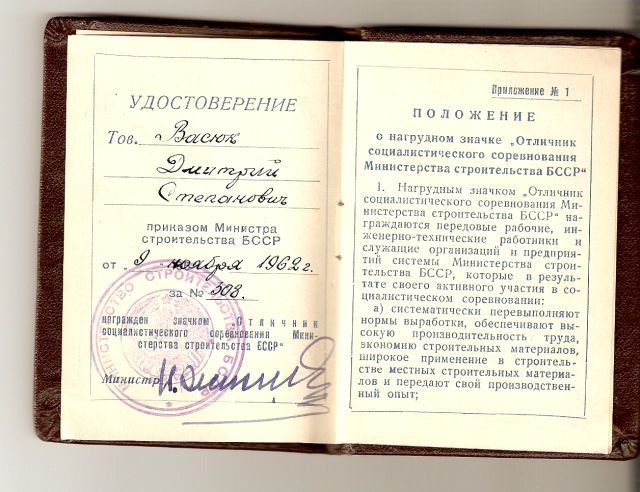 УДОСТОВЕРЕНИЕ
Тов. Васюк
Дмитрий
Степанович
приказом Министра
строительства БССР
от „9 ноября 1962 г.
за № 508.
награжден значком „Отличник
социалистического соревнования Мини-
стерства строительства БССР“
Министр
Приложение № 1
ПОЛОЖЕНИЕ
о нагрудном значке „Отличник
социалистического соревнования
Министерства строительства БССР“
1. Нагрудным значком „Отличник
социалистического соревнования Ми-
нистерства строительства БССР“ на-
граждаются передовые рабочие, ин-
женерно-технические работники и
служащие организаций и предприя-
тий системы Министерства строи-
тельства БССР, которые в резуль-
тате своего активного участия в со-
циалистическом соревновании:
а) систематически перевыполняют
нормы выработки, обеспечивают вы-
сокую производительность труда,
экономию строительных материалов,
широкое применение в строитель-
стве местных строительных материа-
лов и передают свой производствен-
ный опыт;